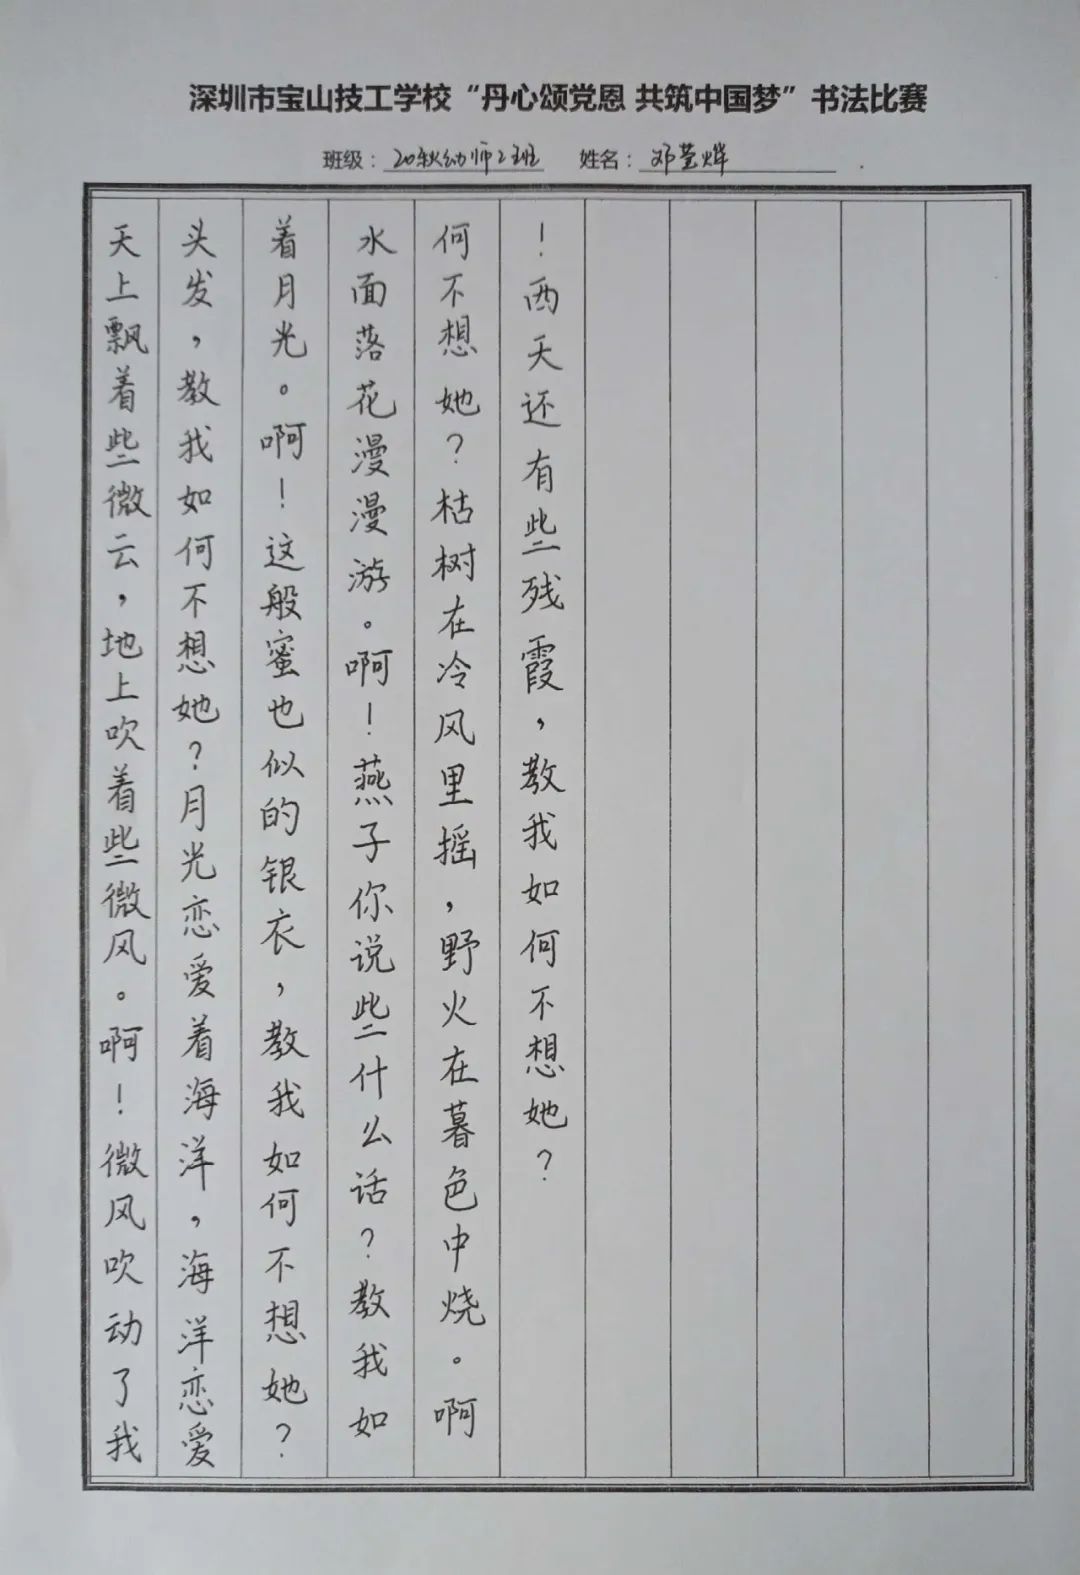 深圳市宝山技工学校“丹心颂党恩 共筑中国梦”书法比赛
班级：20秋幼师2班 姓名：邓莹烨
天上飘着些微云，地上吹着些微风。啊！微风吹动了我
头发，教我如何不想她？月光恋爱着海洋，海洋恋爱
着月光。啊！这般蜜也似的银衣，教我如何不想她？
水面落花漫漫游。啊！燕子你说些什么话？教我如
何不想她？枯树在冷风里摇，野火在暮色中烧。啊
！西天还有些残霞，教我如何不想她？